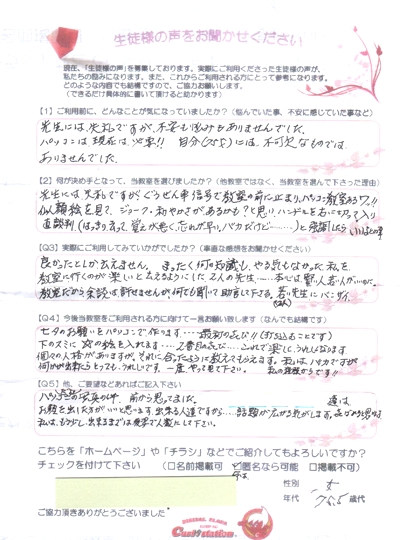 生徒様の声をお聞かせください
現在、「生徒様の声」を募集しております。実際にご利用くださった生徒様の声が、
私たちの励みになります。また、これからご利用される方にとって参考になります。
どのような内容でも結構ですので、ご協力お願いします。
(できるだけ具体的に書いて頂けると助かります)
【1】ご利用前に、どんなことが気になっていましたか？(悩んでいた事、不安に感じていた事など)
先生には失礼ですが、不安も悩みもありませんでした。
パソコンは現在は必要!! 自分には、不可欠なものでは
ありませんでした。
【2】何が決め手となって、当教室を選びましたか？(他教室ではなく、当教室を選んで下さった理由)
先生には失礼ですがぐうぜん車信号で教室の前に止まり、パソコン教室あるワ!!
似顔絵を見て、ジョーク・和やかさがあるかも？と思い、ハンドルを右に切って入り
直談判(はっきり言って覚えが悪く、忘れが早いバカだけど……)と
【3】実際にご利用してみていかがでしたか？(率直な感想をお聞かせください)
良かったとしか云えません。まったく何の知識も、やる気もなかった私を
教室に行くのが楽しいと云えるようにした2人の先生……
教室だから余談は許せませんが、何でも聞いて助言して下さる。若い先生にバンザイ。
【4】今後当教室をご利用される方に向けて一言お願い致します(なんでも結構です)
七夕のお願いをパソコンで作ります……最初の喜び!!(打ち込むことです)
下のスミに の絵を入れます……2番目の喜び……これで楽しく、うれしくなります
個々の人格がありますが、それに合ったように教えてもらえます。私はバカですが
何かが出来たらとってもうれしいです 一度やって見て下さい。
【5】他、ご要望などあればご記入下さい
お顔を出した方がいいと思います 出来る人達ですから……話題が広がる気がします。
私は、もう少し出来るまでは
こちらを「ホームページ」や「チラシ」などでご紹介してもよろしいですか？
チェックを付けて下さい (□名前掲載可 ☑匿名なら可能 □掲載不可)
性別 女
年代 歳代
ご協力頂きありがとうございました